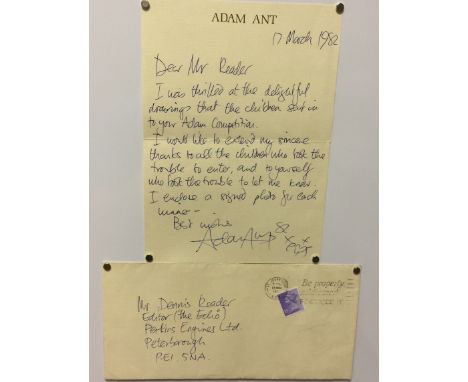 ADAM ANT
17 March 1982
Dear Mr Reader
I was thrilled at the delightful
drawings that the children sent in
to your Adam Competition.
I would like to extend my sincere
thanks to all the children who took the
trouble to enter, and to yourself
who took the trouble to let me know.
I enclose a signed photo for each
winner -
Best wishes
Adam Ant 82
Mr Dennis Reader
Editor (the Echo)
Perkins Engines Ltd.
Peterborough
PE1 5NA.
Be properly